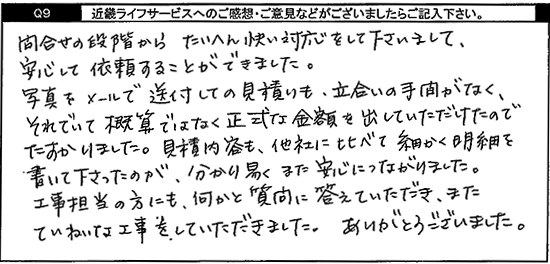 Q9 近畿ライフサービスへのご感想・ご意見などがございましたらご記入下さい。
問合せの段階から たいへん快い対応をして下さいまして、
安心して依頼することができました。
写真をメールで送付しての見積りも、立合いの手間がなく、
それでいて概算ではなく正式な金額を出していただけたので
たすかりました。見積内容も、他社に比べて細かく明細を
書いて下さったのが、分かり易くまた安心につながりました。
工事担当の方にも、何かと質問に答えていただき、また
ていねいな工事をしていただきました。 ありがとうございました。